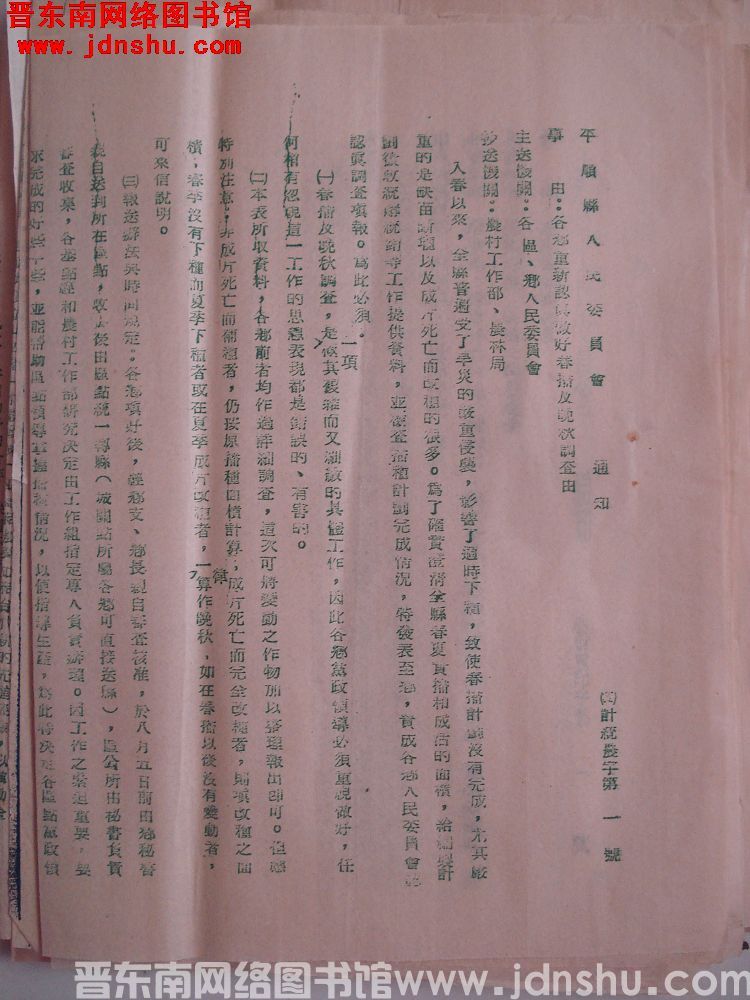 晋东南网络图书馆
www.jdnshu.com
平順縣人民委員會 通知
計統農字第一號
事由：各鄉重新認真做好春播及晚秋調查由
主送機關：各區、鄉人民委員會
抄送機關：農村工作部、農林局
入春以來，全縣普遍受了旱災的嚴重侵襲，影響了適時下種，致使春播計劃沒有完成，尤其嚴
重的是缺苗斷壠以及成片死亡而改種的很多。為了確實澄清全縣春夏實播和成活的面積，給編製計
劃徵收統購統銷等工作提供資料，並檢查播種計劃完成情況，特發表至鄉，責成各鄉人民委員會
認真調查填報。為此必須。
一項
㈠春播及晚秋調查，是極其複雜而又細緻的具體工作，因此各鄉黨政領導必須重視做好，任
何稍有忽視這一工作的思想表現都是錯誤的、有害的。
㈡本表所取資料，各鄉前者均作過詳細調查，這次可將變動之作物加以整理報出即可。但應
特別注意，非成片死亡而補種者，仍按原播種面積計算，成片死亡而完全改種者，則填改種之面
積，春季沒有下種而夏季下種者或在夏季成片改種者，一算作晚秋，如在春播以後沒有變動者，
律
可來信說明。
㈢報送辦法與時間規定：各鄉填好後，經鄉支、鄉長親自審查核准，於八月五日前由鄉秘書
親自送到所在區點，收齊後由區點統一轉縣（城關點所屬各鄉可直接送縣），區公所由秘書負責
審查收集，各基點經和農村工作部研究決定由工作組指定專人負責辦理。因工作之緊迫重要，要
求完成的好些、，並能幫助區點領導掌握播種情況，以便指導生產，為此特決定各區點黨政領
晋东南网络图书馆www.jdnshu.com